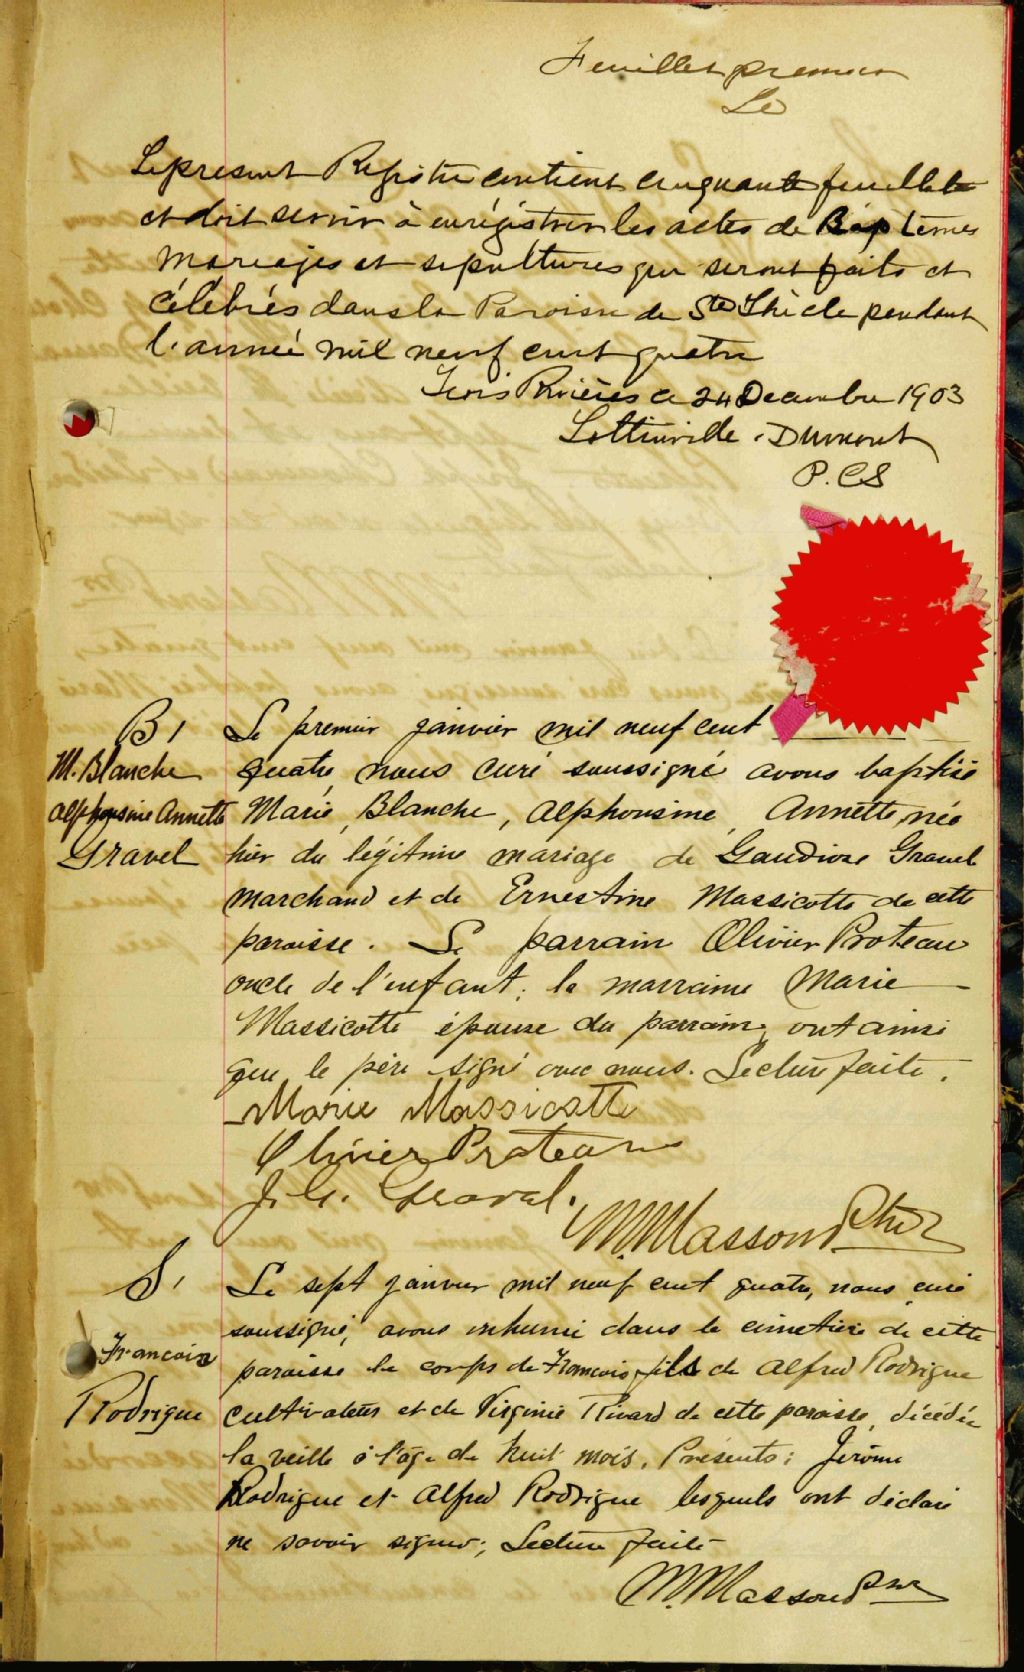 Feuillet premier
Le
Le présent Registre contient cinquante feuillets
et doit servir à enrégistrer les actes de Baptêmes
Mariages et sepultures qui seront faits et
célébrés dans la Paroisse de Ste Thècle pendant
l'année mil neuf cent quatre
Trois Rivières ce 24 Decembre 1903
Lottinville & Dumont
P.C.S
B1
M. Blanche
Alphonsine Annette
Gravel
Le premier janvier mil neuf cent
quatre nous curé soussigné avons baptisé
Marie, Blanche, Alphonsine, Annette, née
hier du légitime mariage de Gaudiose Gravel
marchand et de Ernestine Massicotte de cette
paroisse. Le parrain Olivier Proteau
oncle de l'enfant; la marraine Marie
Massicotte épouse du parrain, ont ainsi
que le père signé avec nous. Lecture faite.
Marie Massicotte
Olivier Proteau
J. G. Gravel.
M. Masson Ptre
S1
François
Rodrigue
Le sept janvier mil neuf cent quatre, nous curé
soussigné, avons inhumé dans le cimetière de cette
paroisse le corps de François, fils de Alfred Rodrigue
cultivateur et de Virginie Rivard de cette paroisse, décédé
la veille à l'âge de huit mois. Présents: Jérôme
Rodrigue et Alfred Rodrigue lesquels ont déclaré
ne savoir signer; Lecture faite
M. Masson Ptre